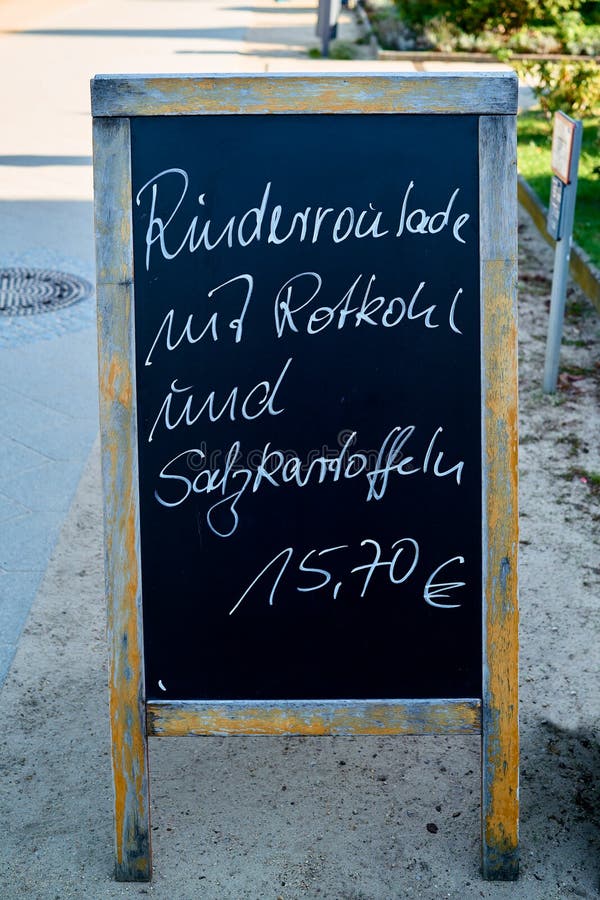 Rinderroulade
mit Rotkohl
und
Salzkartoffeln
15,70 €